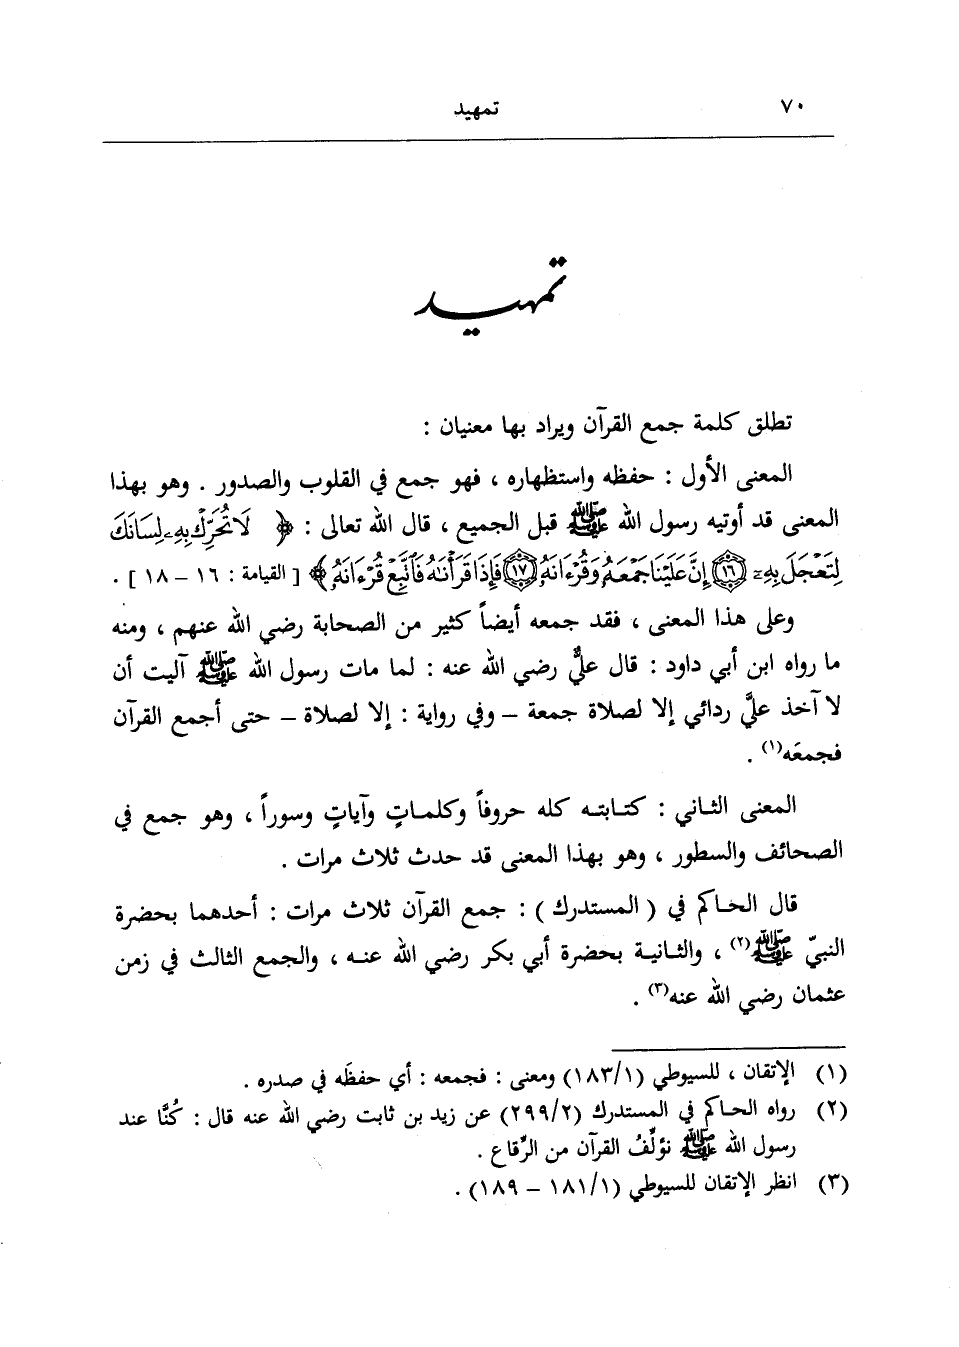 ٧٠ تمهيد
تمهيد
تطلق كلمة جمع القرآن ويراد بها معنيان :
المعنى الأول : حفظه واستظهاره ، فهو جمع في القلوب والصدور . وهو بهذا
المعنى قد أوتيه رسول الله ﷺ قبل الجميع ، قال الله تعالى : ﴿ لَا تُحَرِّكْ بِهِۦ لِسَانَكَ
لِتَعْجَلَ بِهِۦٓ ﴿١٦﴾ إِنَّ عَلَيْنَا جَمْعَهُۥ وَقُرْءَانَهُۥ ﴿١٧﴾ فَإِذَا قَرَأْنَٰهُ فَٱتَّبِعْ قُرْءَانَهُۥ ﴾ [ القيامة : ١٦ – ١٨ ] .
وعلى هذا المعنى ، فقد جمعه أيضاً كثير من الصحابة رضي الله عنهم ، ومنه
ما رواه ابن أبي داود : قال عليٌّ رضي الله عنه : لما مات رسول الله ﷺ آليت أن
لا آخذ عليَّ ردائي إلا لصلاة جمعة – وفي رواية : إلا لصلاة – حتى أجمع القرآن
فجمعَه(١) .
المعنى الثاني : كتابته كله حروفاً وكلماتٍ وآياتٍ وسوراً ، وهو جمع في
الصحائف والسطور ، وهو بهذا المعنى قد حدث ثلاث مرات .
قال الحاكم في ( المستدرك ) : جمع القرآن ثلاث مرات : أحدهما بحضرة
النبيّ ﷺ(٢) ، والثانية بحضرة أبي بكر رضي الله عنه ، والجمع الثالث في زمن
عثمان رضي الله عنه(٣) .
(١) الإتقان ، للسيوطي (١/١٨٣) ومعنى : فجمعه : أي حفظَه في صدره .
(٢) رواه الحاكم في المستدرك (٢/٢٩٩) عن زيد بن ثابت رضي الله عنه قال : كُنَّا عند
رسول الله ﷺ نؤلِّفُ القرآن من الرِّقاع .
(٣) انظر الإتقان للسيوطي (١/١٨١ – ١٨٩) .